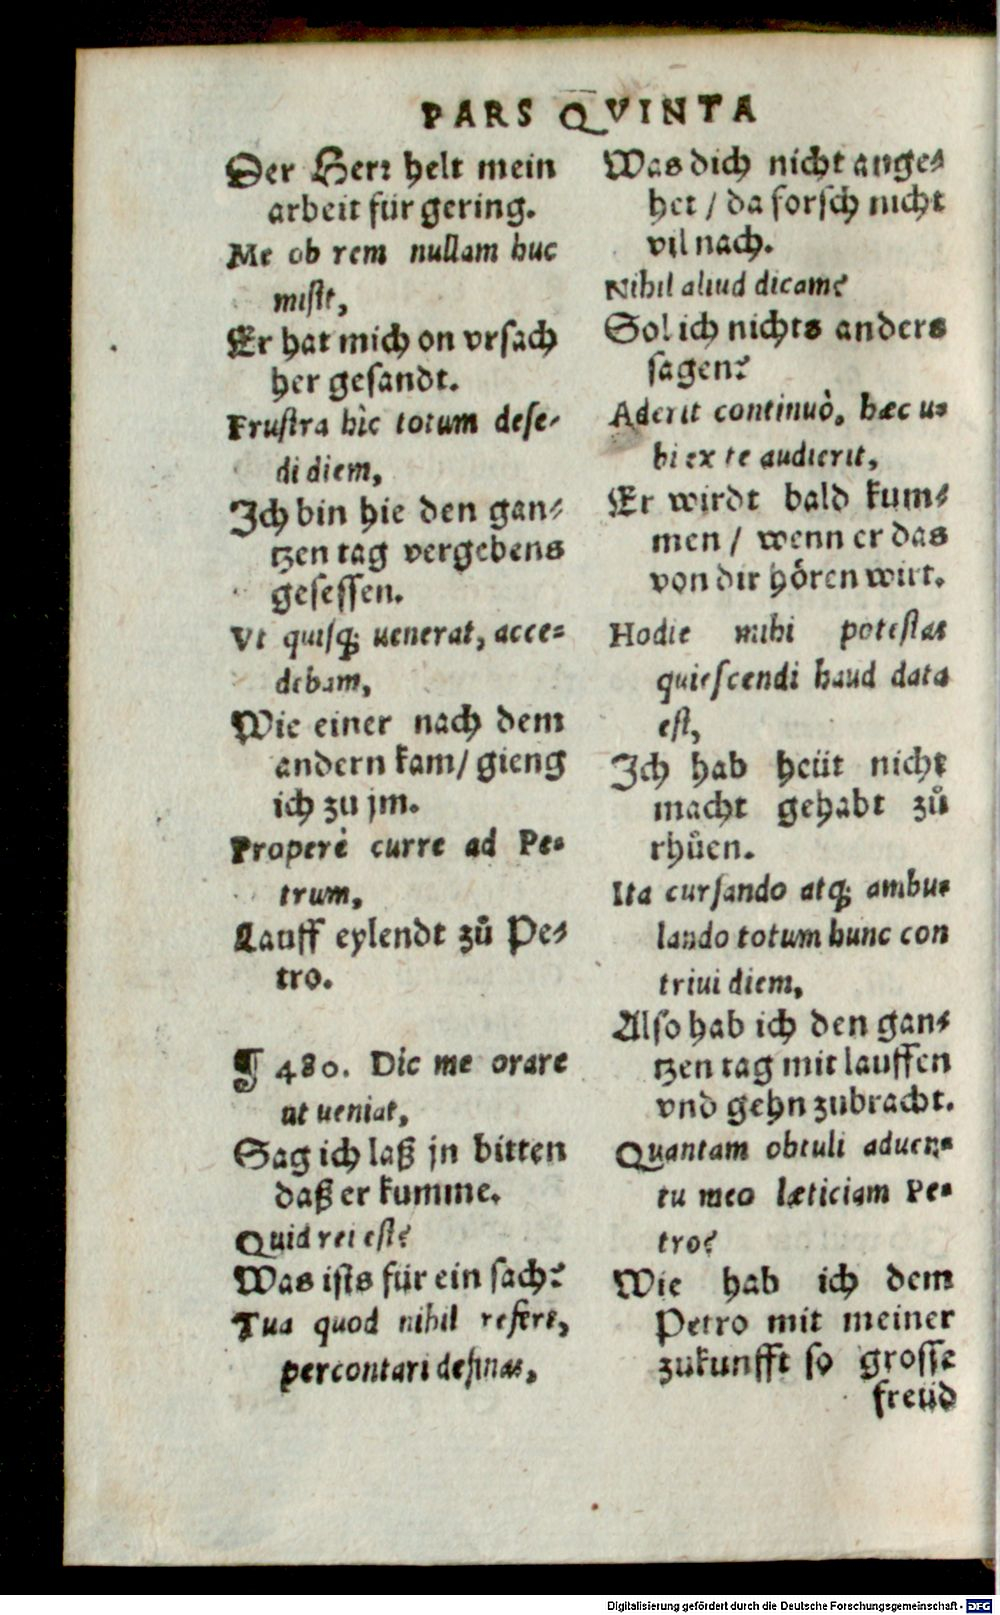 PARS QVINTA
Der Herr helt mein
arbeit für gering.
Me ob rem nullam huc
misit,
Er hat mich on vrsach
her gesandt.
Frustra hìc totum dese-
di diem,
Ich bin hie den gan-
tzen tag vergebens
gesessen.
Vt quisq; uenerat, acce-
debam,
Wie einer nach dem
andern kam/ gieng
ich zu jm.
Properè curre ad Pe-
trum,
Lauff eylendt zů Pe-
tro.
¶ 480. Dic me orare
ut ueniat,
Sag ich laß jn bitten
daß er kumme.
Quid rei est?
Was ists für ein sach?
Tua quod nihil refert,
percontari desinas,
Was dich nicht ange-
het / da forsch nicht
vil nach.
Nihil aliud dicam?
Sol ich nichts anders
sagen?
Aderit continuò, hæc u-
bi ex te audierit,
Er wirdt bald kum-
men / wenn er das
von dir hören wirt.
Hodie mihi potestas
quiescendi haud data
est,
Ich hab heüt nicht
macht gehabt zů
rhůen.
Ita cursando atq; ambu-
lando totum hunc con
triui diem,
Also hab ich den gan-
tzen tag mit lauffen
vnd gehn zubracht.
Quantam obtuli aduen-
tu meo læticiam Pe-
tro?
Wie hab ich dem
Petro mit meiner
zukunfft so grosse
freüd
Digitalisierung gefördert durch die Deutsche Forschungsgemeinschaft - DFG